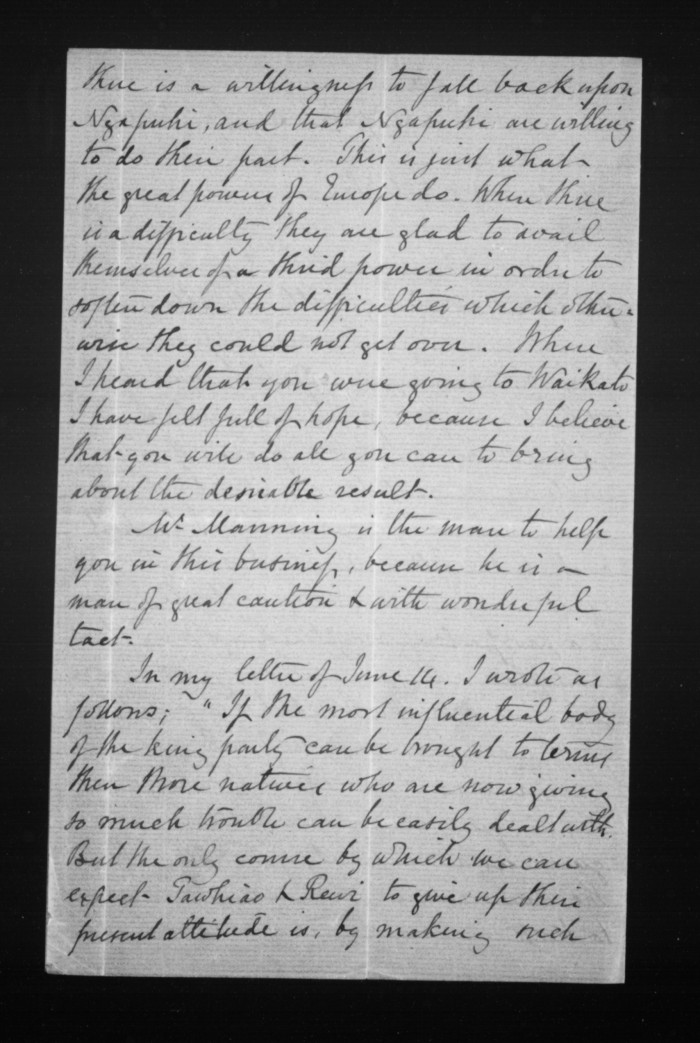 there is a willingness to fall back upon
Ngapuhi, and that Ngapuhi are willing
to do their part. This is just what
the great powers of Europe do. When there
is a difficulty they are glad to avail
themselves of a third power in order to
soften down the difficulties which other-
wise they could not get over. When
I heard that you were going to Waikato
I have felt full of hope, because I believe
that you will do all you can to bring
about the desirable result.
Mr Manning is the man to help
you in this business, because he is a
man of great caution & with wonderful
tact.
In my letter of June 14. I wrote as
follows; "If the most influential body
of the king party can be brought to terms
then those natives who are now giving
so much trouble can be easily dealt with.
But the only course by which we can
expect Tawhiao & Rewi to give up their
present attitude is, by making such